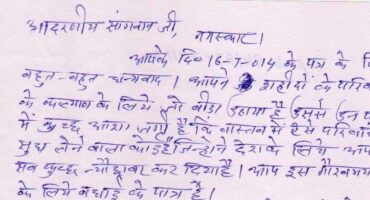 आदरणीय सांगवान जी,
नमस्कार।
आपके दि० 16-7-014 के पत्र के लि
बहुत-बहुत धन्यवाद। आपने शहीदों के परिवा
के कल्याण के लिये जो बीड़ा उठाया है इससे इन प
में कुछ आशा जगी है कि वास्तव में ऐसे परिवारों
सुध लेने वाला कोई है जिन्होंने देश के लिये अप
सब कुछ न्यौछावर कर दिया है। आप इस गौरवमय
के लिये बधाई के पात्र हैं।